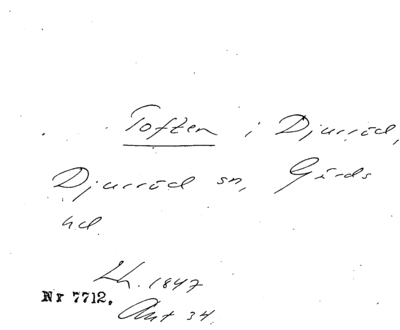 Toften i Djurröd,
Djurröd sn, Gärds
hd.
Lh. 1847
Nr 7712. Akt 34.